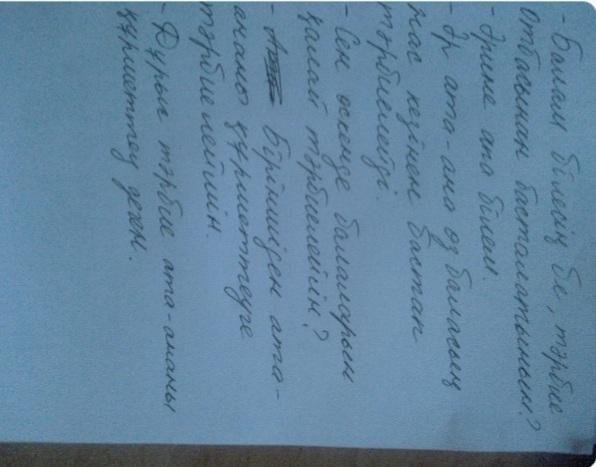 - Балам білесің бе, тәрбие
Отбасынан басталатынын?
- Әрине апа білем.
- Әр ата-ана өз баласын
жас кезінен бастап
тәрбиелейді.
- Сен өскенде балаларын
қалай тәрбиелейсің?
- Біріншіден ата-
анамо құрметтеуге
тәрбиелеймін.
- Дұрыс тәрбие ата-ананы
құрметтеу деген.